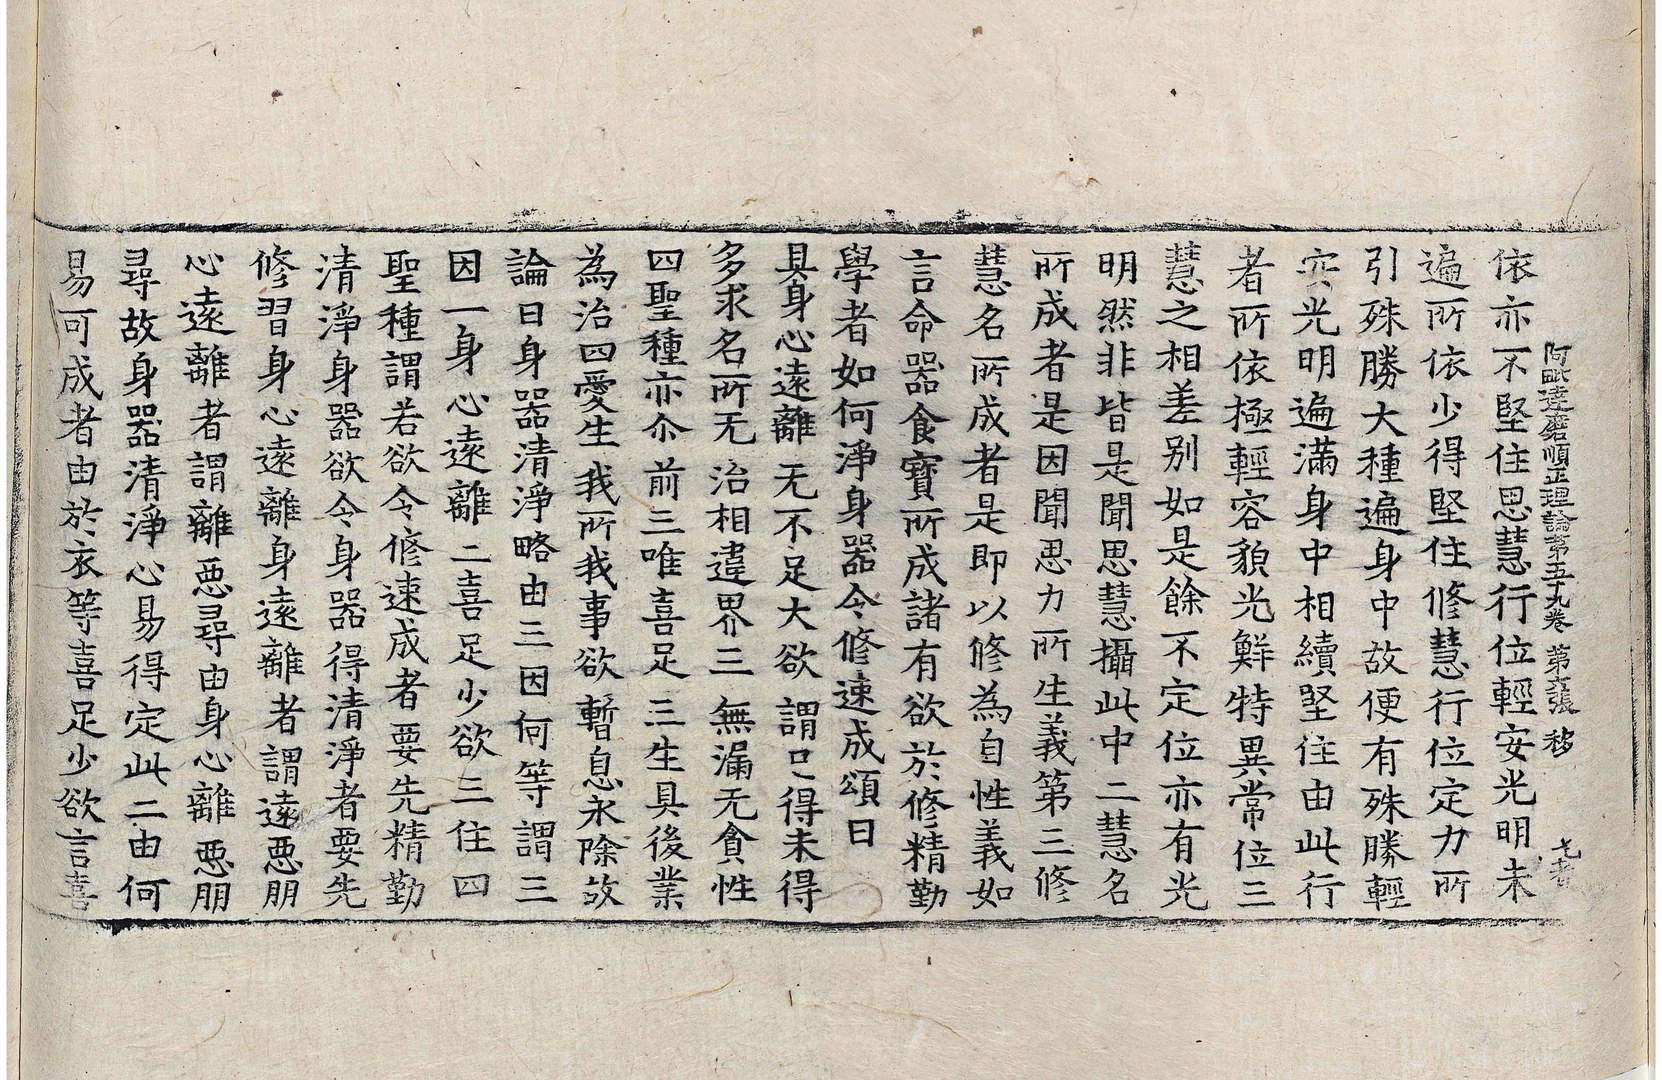 阿毗達磨順正理論第五十九卷 第六張 移
依亦不堅住思慧行位輕安光明未
遍所依少得堅住修慧行位定力所
引殊勝大種遍身中故便有殊勝輕
安光明遍滿身中相續堅住由此行
者所依極輕容貌光鮮特異常位三
慧之相差别如是餘不定位亦有光
明然非皆是聞思慧攝此中二慧名
所成者是因聞思力所生義第三修
慧名所成者是即以修為自性義如
言命器食寶所成諸有欲於修精勤
學者如何淨身器令修速成頌曰
具身心遠離 无不足大欲 謂已得未得
多求名所无 治相違界三 無漏无貪性
四聖種亦尒 前三唯喜足 三生具後業
為治四愛生 我所我事欲 暫息永除故
論曰身器清淨略由三因何等謂三
因一身心遠離二喜足少欲三住四
聖種謂若欲令修速成者要先精勤
清淨身器欲令身器得清淨者要先
修習身心遠離身遠離者謂遠惡朋
心遠離者謂離惡尋由身心離惡朋
尋故身器清淨心易得定此二由何
易可成者由於衣等喜足少欲言喜